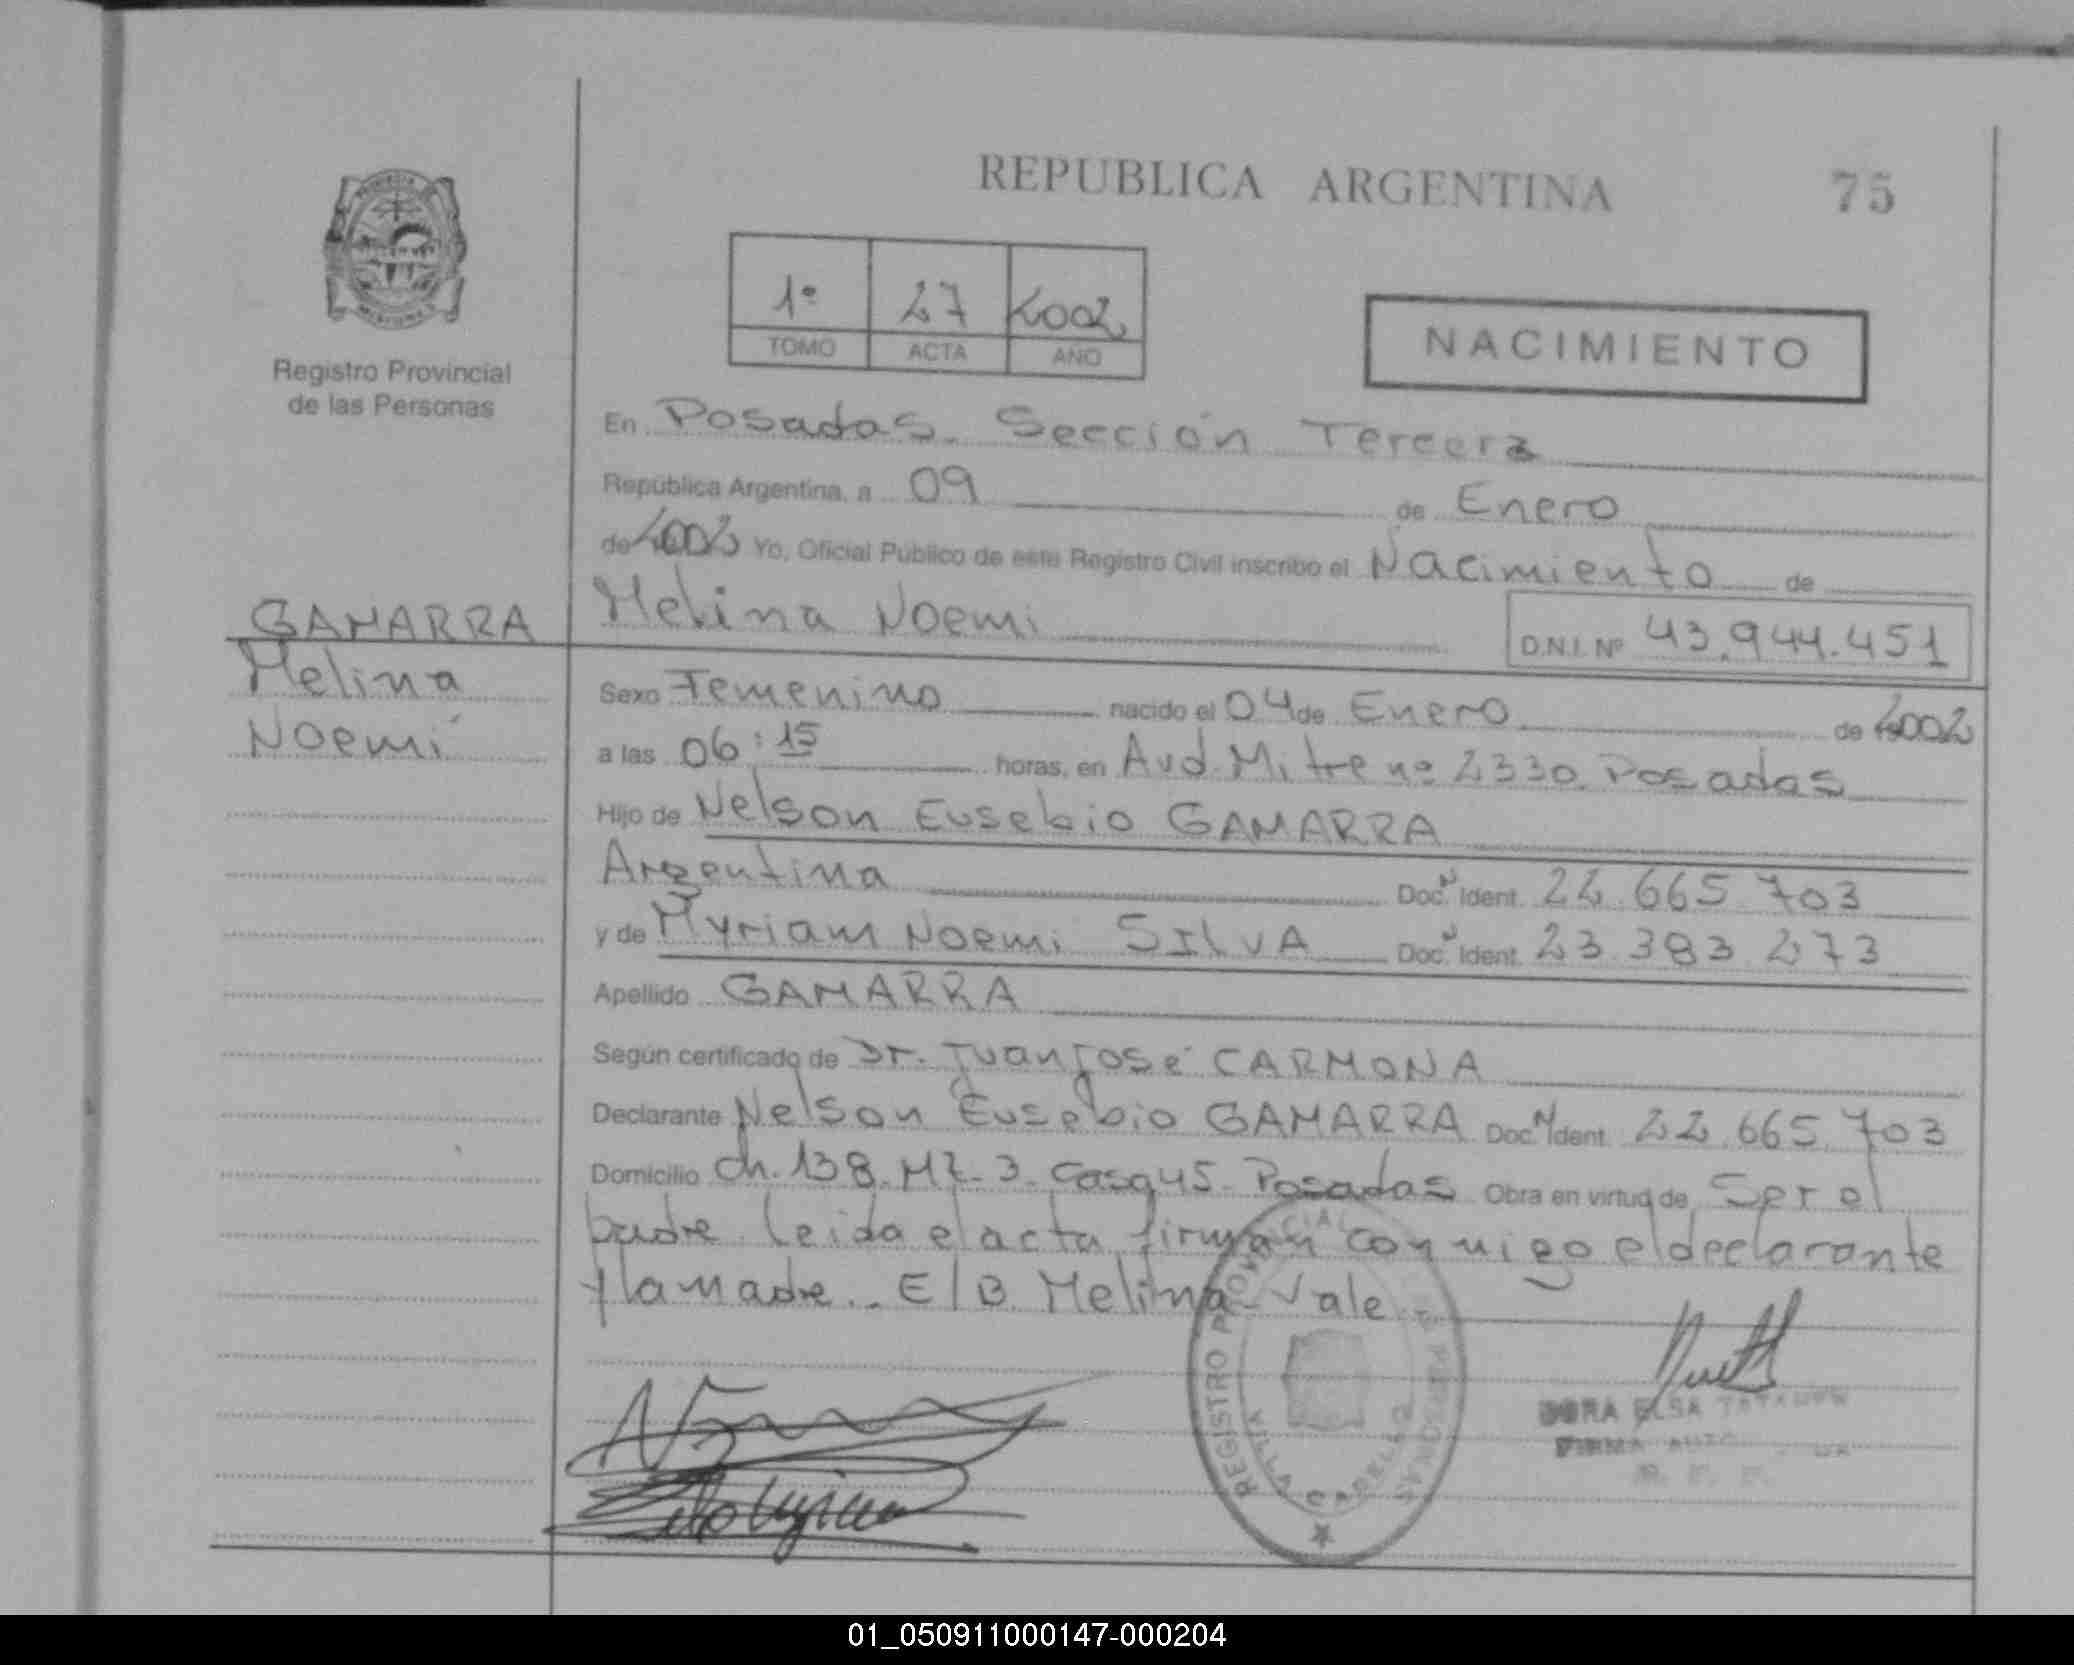 REPUBLICA ARGENTINA
75
1º 27 2002
TOMO ACTA AÑO
NACIMIENTO
Registro Provincial
de las Personas
En Posadas. Sección Tercera
República Argentina, a 09 de Enero
de 2002 Yo, Oficial Público de este Registro Civil inscribo el Nacimiento de
GAMARRA
Melina
Noemí
Melina Noemi
D.N.I. Nº 43.944.451
Sexo Femenino nacido el 04 de Enero de 2002
a las 06:15 horas, en Avd. Mitre nº 2330. Posadas
Hijo de Nelson Eusebio GAMARRA
Argentina Doc. N Ident. 22.665.703
y de Myriam Noemi SILVA Doc. N Ident. 23.383.273
Apellido GAMARRA
Según certificado de Dr. Juan José CARMONA
Declarante Nelson Eusebio GAMARRA Doc. N Ident. 22.665.703
Domicilio Ch. 138. Mz. 3. Casa 45. Posadas Obra en virtud de Ser el
padre. Leida el acta, firman conmigo el declarante
y la madre.. E/B. Melina. Vale.
REGISTRO PROVINCIAL DE LAS PERSONAS
VILLA CABELLO
ELSA
FIRMA
01_050911000147-000204